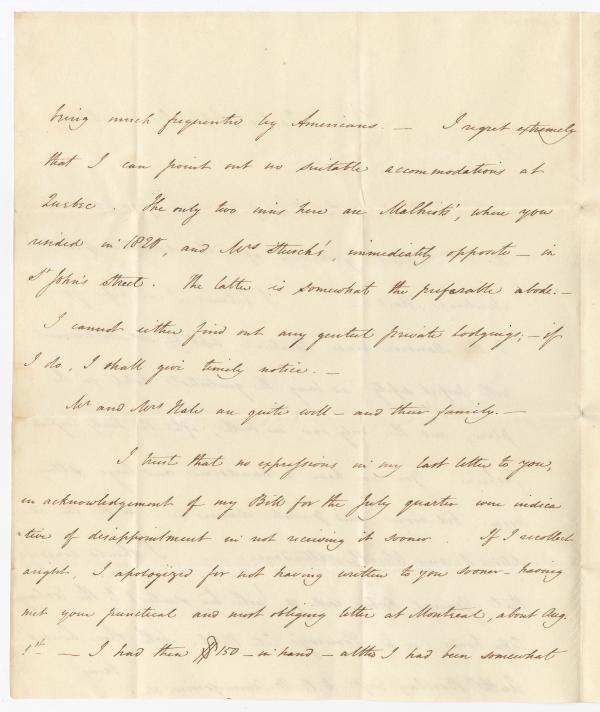 being much frequented by Americans. — I regret extremely
that I can point out no suitable accommodations at
Quebec. The only two inns here are Malhiots', where you
resided in 1820, and Mrs Stusck's, immediately opposite — in
St John's Street. The latter is somewhat the preferable abode. —
I cannot either find out any genteel private lodgings; — if
I do, I shall give timely notice. —
Mr and Mrs Hale are quite well — and their family. —
I trust that no expressions in my last letter to you,
in acknowledgement of my Bill for the July quarter were indica
tive of disappointment in not receiving it sooner. If I recollect
aught, I apologized for not having written to you sooner — having
met your punctual and most obliging letter at Montreal, about Aug.
1st — I had then $150 — in hand — altho I had been somewhat